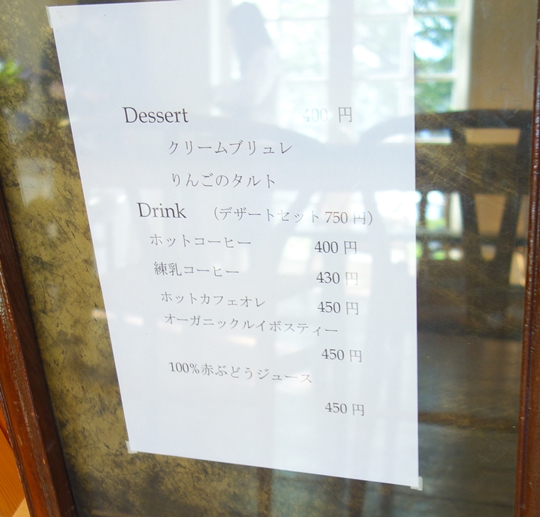 Dessert 400 円
クリームブリュレ
りんごのタルト
Drink （デザートセット 750 円）
ホットコーヒー 400 円
練乳コーヒー 430 円
ホットカフェオレ 450 円
オーガニックルイボスティー
450 円
100%赤ぶどうジュース
450 円